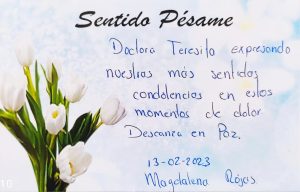 Sentido Pésame
Doctora Teresita expresando
nuestras más sentidas
condolencias en estos
momentos de dolor
Descanza en Paz.
13-02-2023
Magdalena Rojas
10